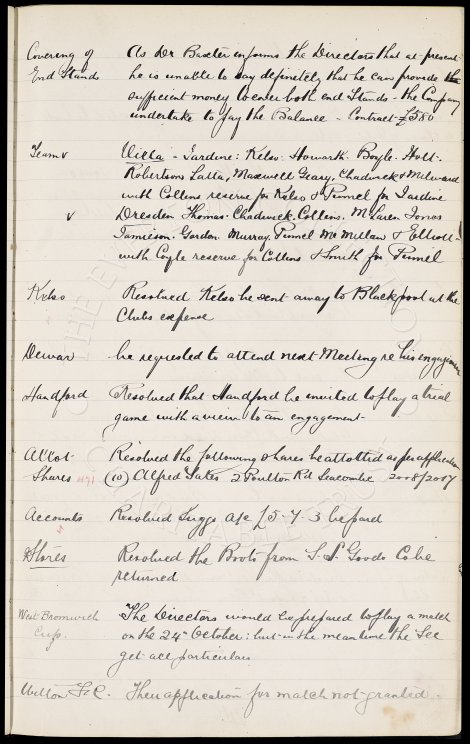 Covering of As Dr Baxter informs the Directors that at present
End Stands he is unable to say definitely that he can provide the
sufficient money to cover both end Stands - the Company
undertake to pay the Balance - Contract - £580
Team v Villa - Jardine: Kelso: Howarth: Boyle. Holt.
Robertson, Latta, Maxwell Geary, Chadwick & Milward
with Collins reserve for Kelso & Pinnel for Jardine
v Dresden Thomas. Chadwick. Collins. McLaren Jones
Jamieson. Gordon. Murray, Pinnel McMillan & Elliott -
with Coyle reserve for Collins & Smith for Pinnel
Kelso Resolved Kelso be sent away to Blackpool at the
Clubs expense
Dewar be requested to attend next Meeting re his engagement
Handford Resolved that Handford be invited to play a trial
game with a view to an engagement -
Allot Resolved the following shares be allotted as per application
Shares 471 (10) Alfred 2 Poulton Rd Seacombe 2008/2017
Accounts Resolved Suggs a/c £5-7-3 be paid
Stores Resolved the Boots from Goods Co be
returned
West Bromwich The Directors would be prepared to play a match
Cup. on the 24th October: but in the meantime the Sec
get all particulars
Witton F.C. Their application for match not granted -